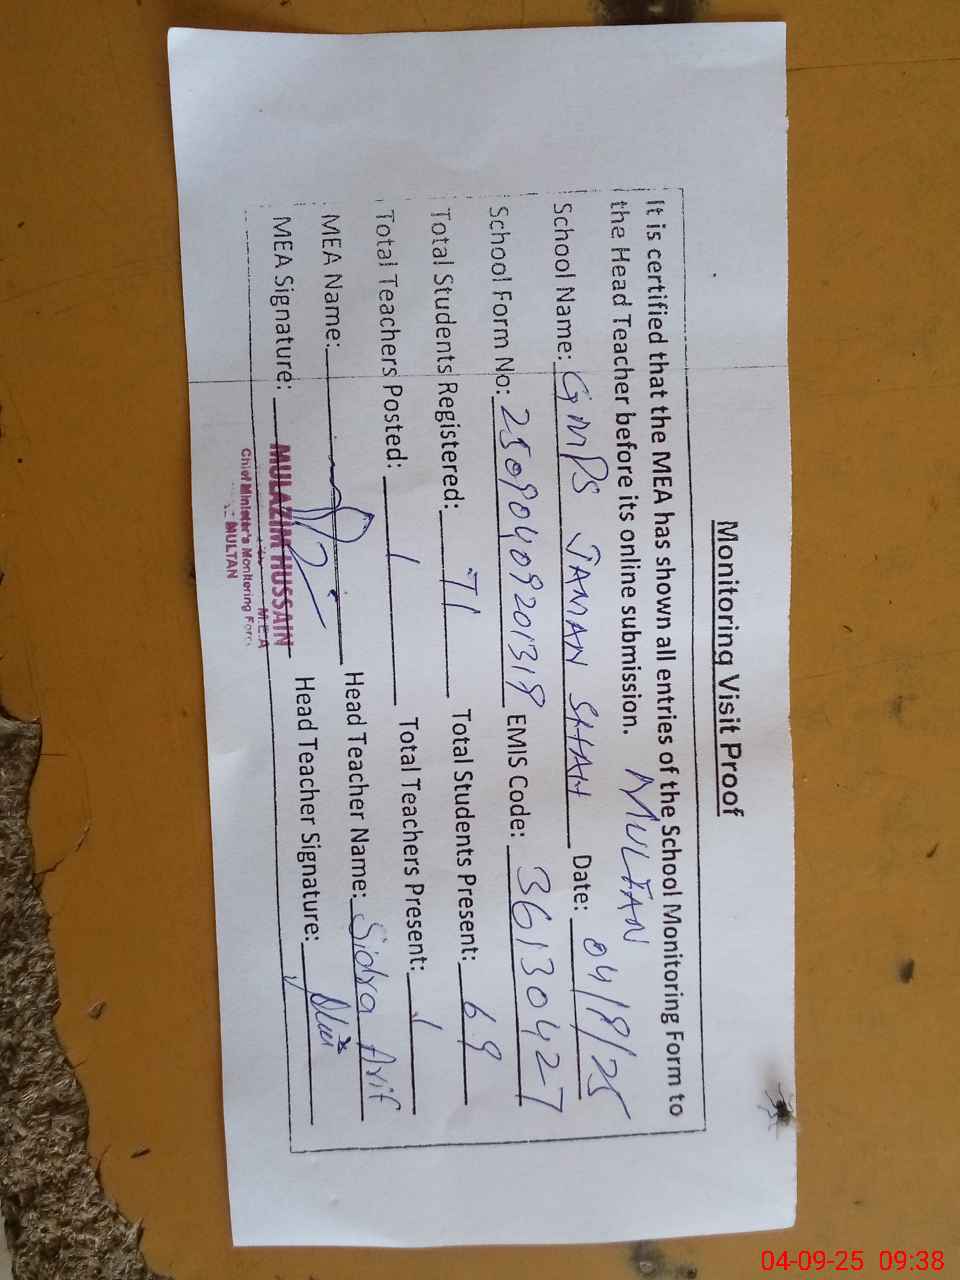 Monitoring Visit Proof
It is certified that the MEA has shown all entries of the School Monitoring Form to
the Head Teacher before its online submission. MULTAN
School Name: GMPS JAMAN SHAH Date: 04/9/25
School Form No: 25090409201319 EMIS Code: 36130427
Total Students Registered: 71 Total Students Present: 69
Total Teachers Posted: 1 Total Teachers Present: 1
MEA Name: Head Teacher Name: Sidra Arif
MEA Signature: Head Teacher Signature:
MULAZIM HUSSAIN
M.E.A
Chief Minister's Monitoring Force
MULTAN
04-09-25 09:38